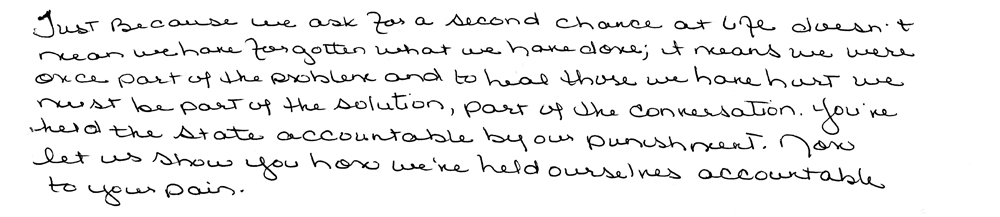 Just Because we ask for a second chance at life doesn't
mean we have forgotten what we have done; it means we were
once part of the problem and to heal those we have hurt we
must be part of the solution, part of the conversation. You've
held the state accountable by our punishment. Now
let us show you how we've held ourselves accountable
to your pain.